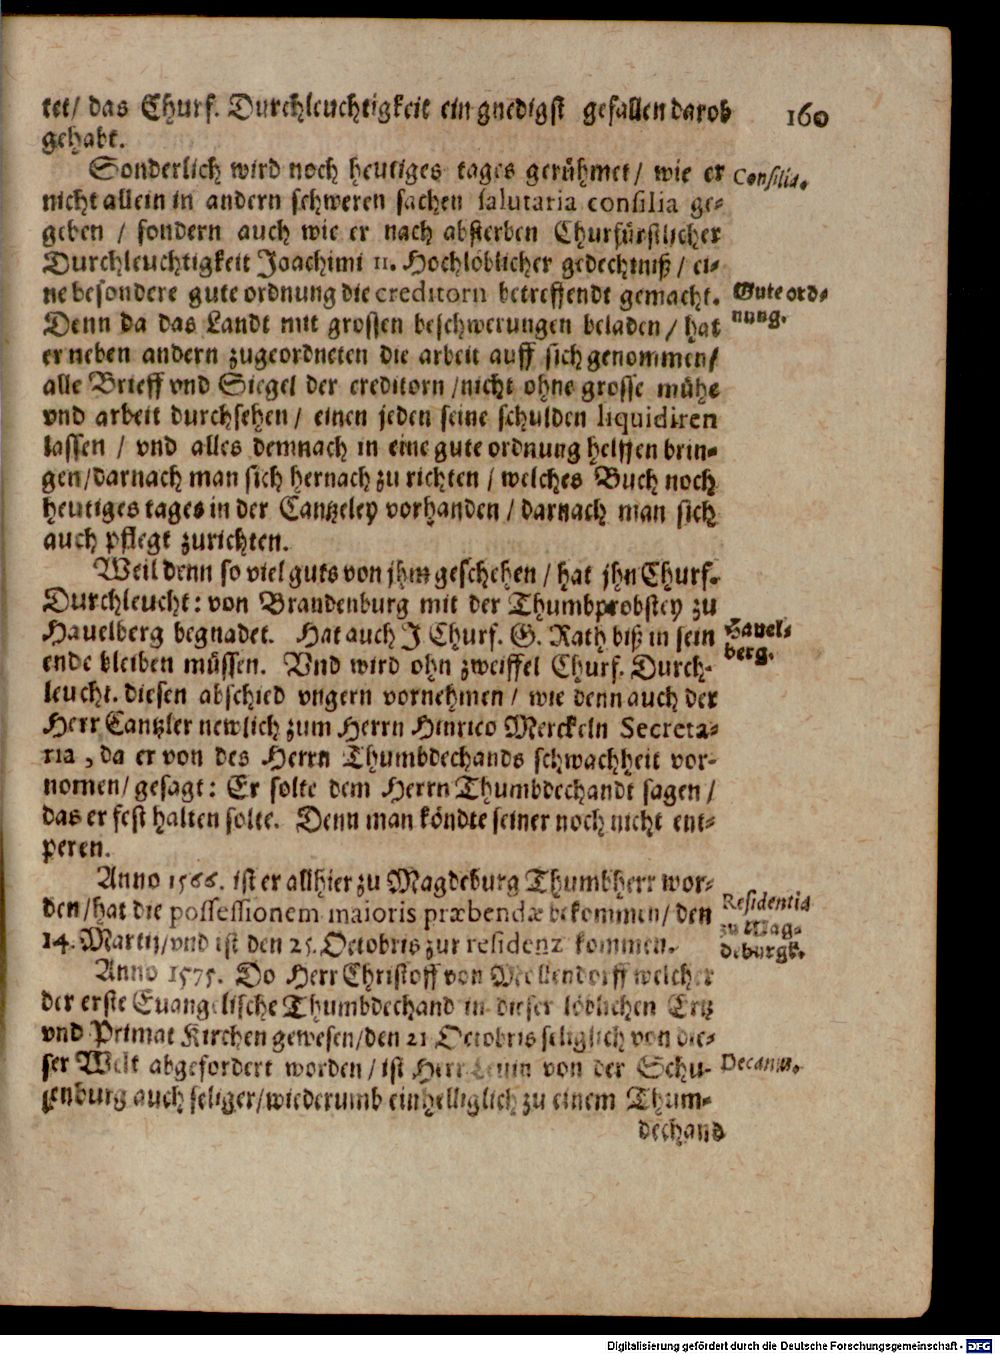 tet/ das Churf. Durchleuchtigkeit ein gnedigst gefallen darob
160
gehabt.
Sonderlich wird noch heutiges tages gerühmet/ wie er
Consilia.
nicht allein in andern schweren sachen salutaria consilia ge-
geben / sondern auch wie er nach absterben Churfürstlicher
Durchleuchtigkeit Joachimi II. Hochlöblicher gedechtniß/ ei-
ne besondere gute ordnung die creditorn betreffendt gemacht.
Gute ord-
nung.
Denn da das Landt mit grossen beschwerungen beladen/ hat
er neben andern zugeordneten die arbeit auff sich genommen/
alle Brieff vnd Siegel der creditorn /nicht ohne grosse mühe
vnd arbeit durchsehen/ einen jeden seine schulden liquidiren
lassen / vnd alles demnach in eine gute ordnung helffen brin-
gen/darnach man sich hernach zu richten / welches Buch noch
heutiges tages in der Cantzeley vorhanden / darnach man sich
auch pflegt zurichten.
Weil denn so viel guts von jhm geschehen / hat jhn Churf.
Durchleucht: von Brandenburg mit der Thumbprobstey zu
Hauelberg begnadet. Hat auch J Churf. G. Rath biß in sein
Hauel-
berg.
ende bleiben müssen. Vnd wird ohn zweiffel Churf. Durch-
leucht. diesen abschied vngern vornehmen / wie denn auch der
Herr Cantzler newlich zum Herrn Hinrico Merckeln Secreta-
ria, da er von des Herrn Thumbdechands schwachheit vor-
nomen/ gesagt: Er solte dem Herrn Thumbdechandt sagen /
das er fest halten solte. Denn man köndte seiner noch nicht ent-
peren.
Anno 1566. ist er allhier zu Magdeburg Thumbherr wor-
den/hat die possessionem maioris præbendæ bekommen/ den
Residentia
zu Mag-
deburgk.
14. Martij/vnd ist den 25. Octobris zur residenz kommen.
Anno 1575. Do Herr Christoff von Mellendorff welcher
der erste Euangelische Thumbdechand in dieser löblichen Ertz
vnd Primat Kirchen gewesen/den 21 Octobris seliglich von die-
ser Welt abgefordert worden / ist Herr Leuin von der Schu-
Decanus.
lenburg auch seliger/wiederumb einhelliglich zu einem Thum-
dechand
Digitalisierung gefördert durch die Deutsche Forschungsgemeinschaft - DFG